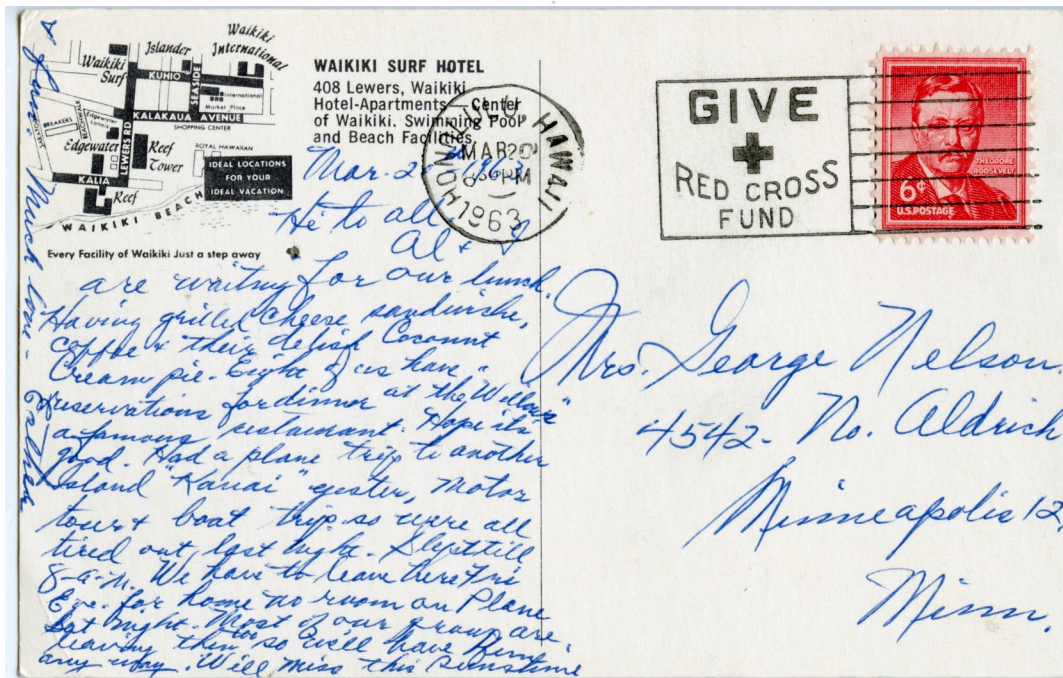 Waikiki
Islander
International
Waikiki
Surf
KUHIO
SEASIDE
International
Market Place
KALAKAUA AVENUE
SHOPPING CENTER
BREAKERS
BEACHWALK
Edgewater
Lanais
LEWERS RD
Edgewater
Reef
Tower
ROYAL HAWAIIAN
KALIA
Reef
IDEAL LOCATIONS
FOR YOUR
IDEAL VACATION
WAIKIKI BEACH
Every Facility of Waikiki Just a step away
WAIKIKI SURF HOTEL
408 Lewers, Waikiki
Hotel-Apartments - Center
of Waikiki. Swimming Pool
and Beach Facilities.
HONOLULU HAWAII
MAR 20
PM
1963
GIVE
RED CROSS
FUND
THEODORE
ROOSEVELT
6¢
U.S. POSTAGE
Mar. 20 - 1963
Hi to all
Al & I
are waiting for our lunch.
Having grilled cheese sandwiche,
coffee & their delish Coconut
Cream pie. Eight of us have
reservations for dinner at the "Willows"
a famous restaurant. Hope its
good. Had a plane trip to another
Island "Kauai" yester, motor
tour & boat trip so were all
tired out last night. Slept till
8-a.m. We have to leave here Fri
Eve. for home no room on Plane
Sat night. Most of our group are
leaving then too so we'll have fun
any way. Will miss this Sunshine
& Fun. Much love -
Mrs. George Nelson.
4542- No. Aldrich
Minneapolis 12,
Minn.